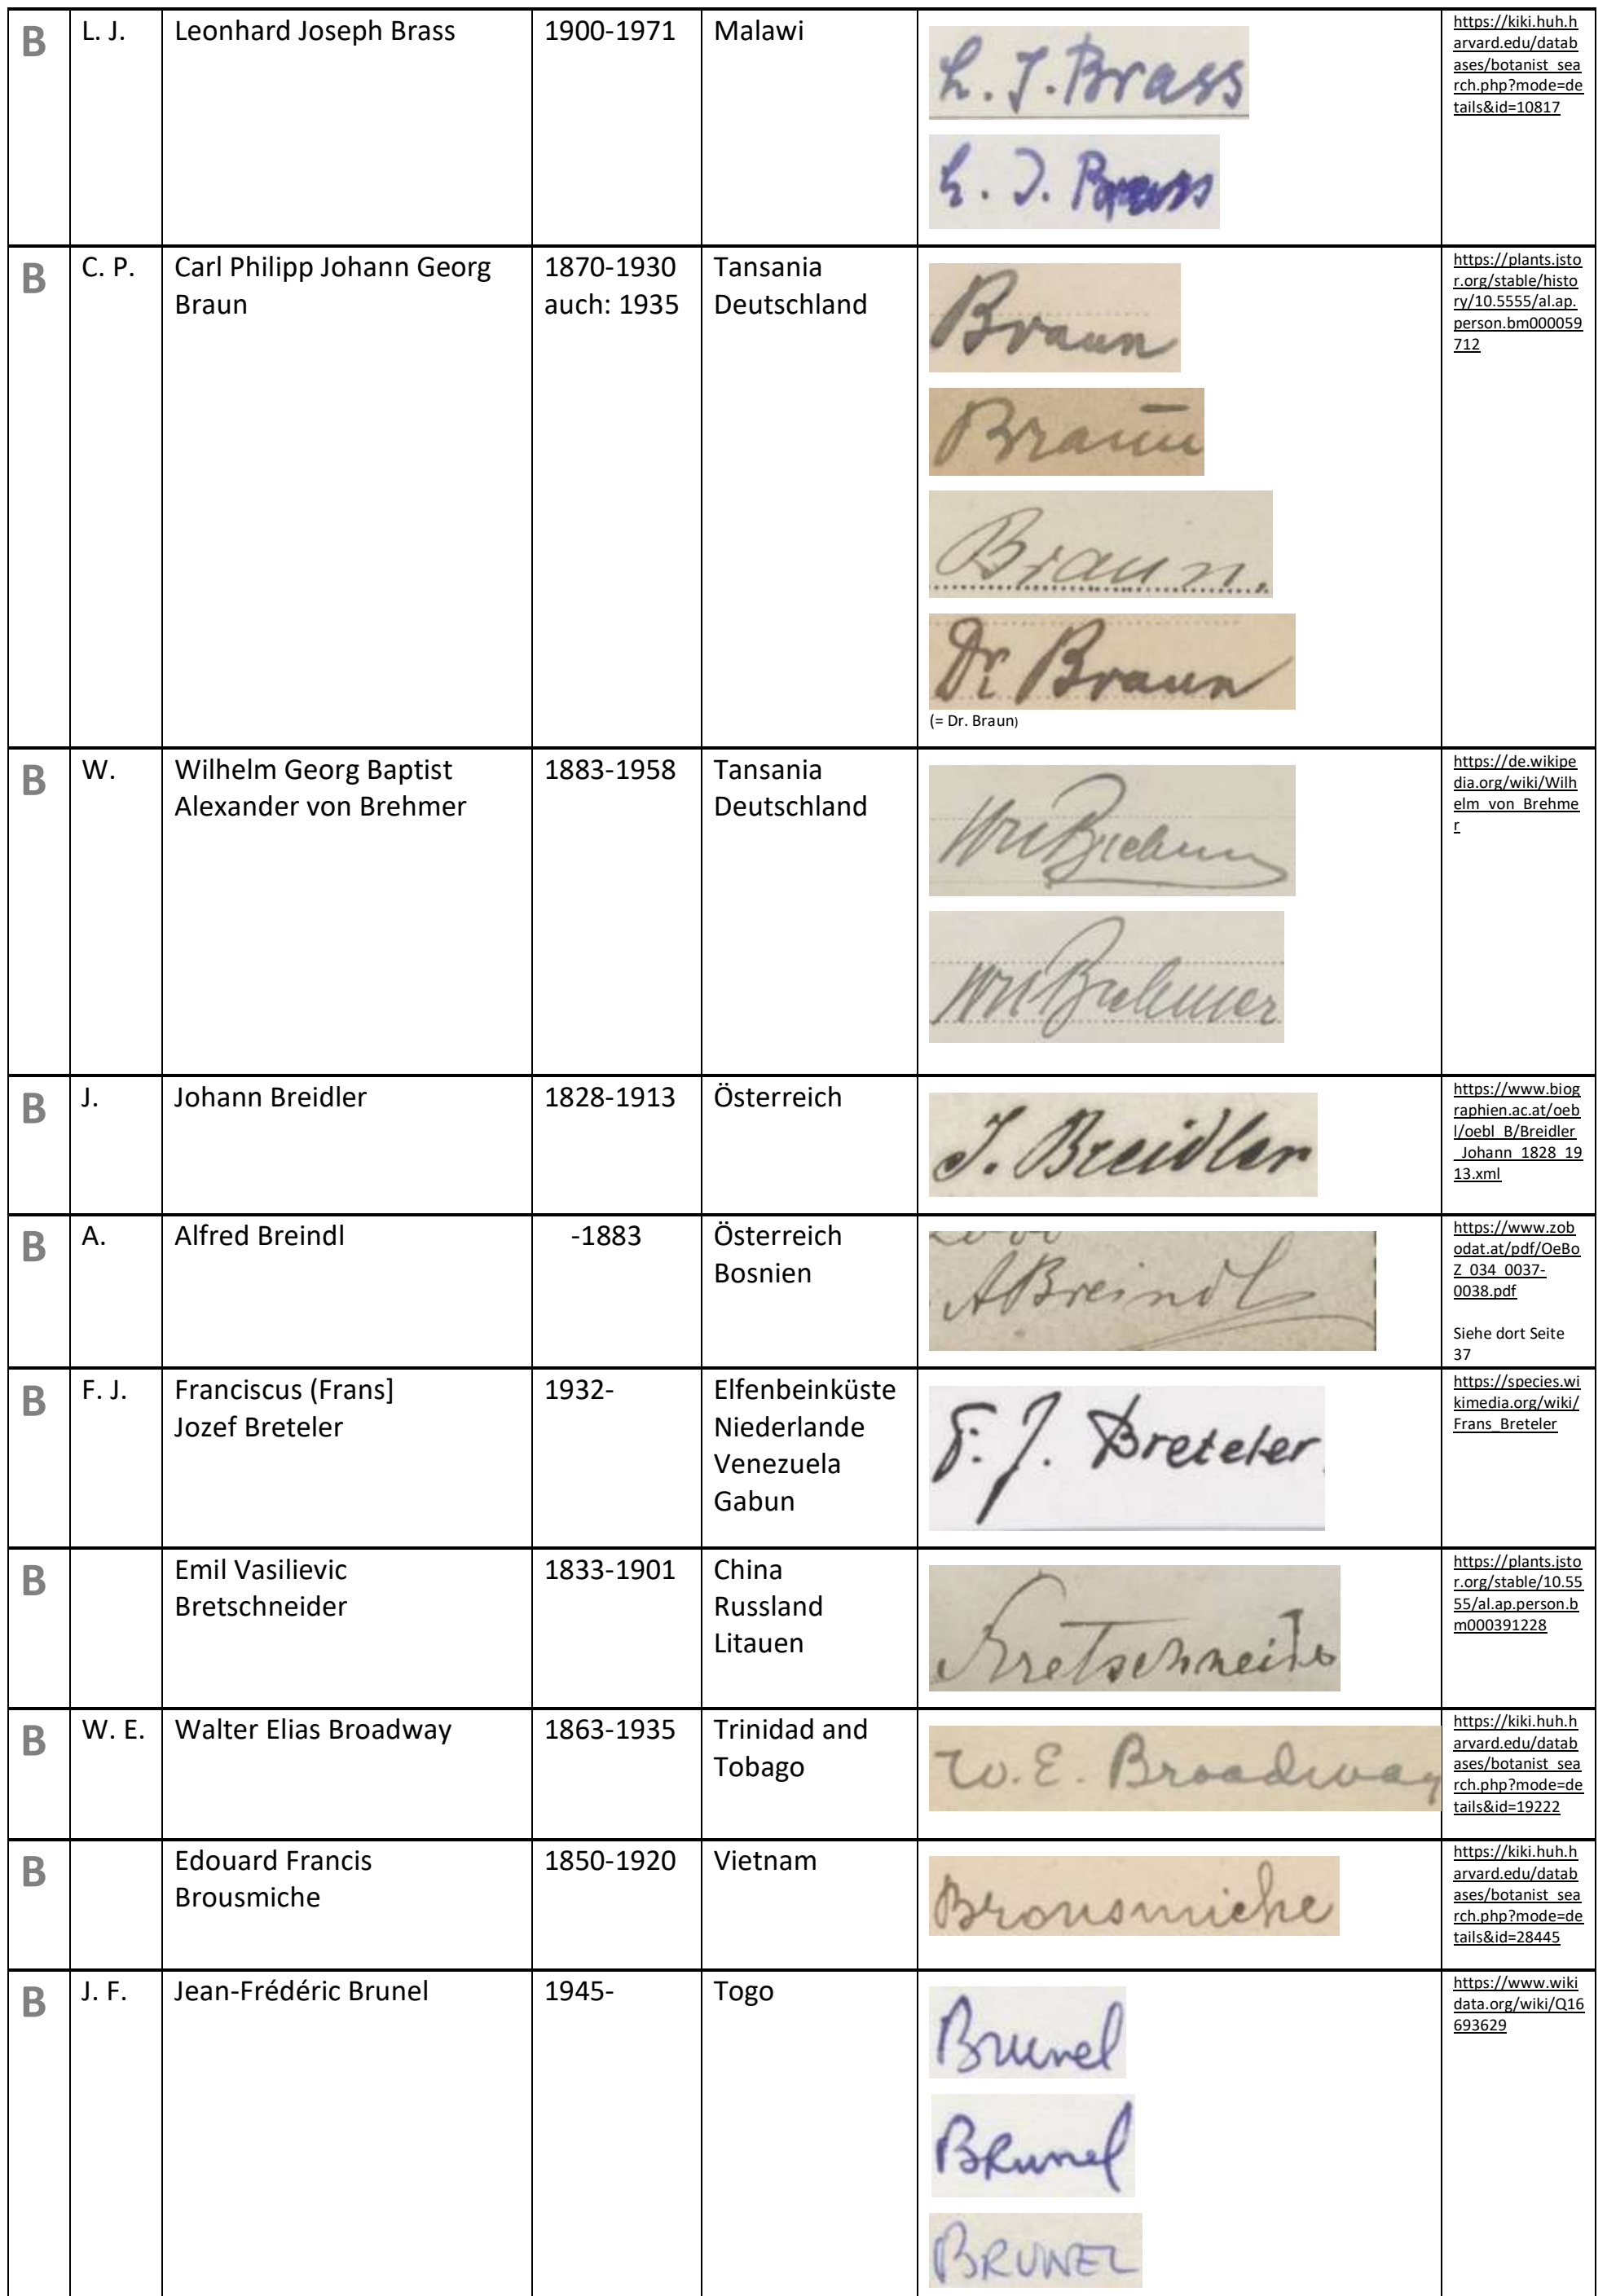 B
L. J.
Leonhard Joseph Brass
1900-1971
Malawi
L. J. Brass
L. J. Brass
https://kiki.huh.h
arvard.edu/datab
ases/botanist_sea
rch.php?mode=de
tails&id=10817
B
C. P.
Carl Philipp Johann Georg
Braun
1870-1930
auch: 1935
Tansania
Deutschland
Braun
Braun
Braun.
Dr. Braun
(= Dr. Braun)
https://plants.jsto
r.org/stable/histo
ry/10.5555/al.ap.
person.bm000059
712
B
W.
Wilhelm Georg Baptist
Alexander von Brehmer
1883-1958
Tansania
Deutschland
Brehmer
https://de.wikipe
dia.org/wiki/Wilh
elm_von_Brehme
r
B
J.
Johann Breidler
1828-1913
Österreich
J. Breidler
https://www.biog
raphien.ac.at/oeb
l/oebl_B/Breidler
_Johann_1828_19
13.xml
B
A.
Alfred Breindl
-1883
Österreich
Bosnien
ABreindl
https://www.zob
odat.at/pdf/OeBo
Z_034_0037-
0038.pdf
Siehe dort Seite
37
B
F. J.
Franciscus (Frans]
Jozef Breteler
1932-
Elfenbeinküste
Niederlande
Venezuela
Gabun
F. J. Breteler
https://species.wi
kimedia.org/wiki/
Frans_Breteler
B
Emil Vasilievic
Bretschneider
1833-1901
China
Russland
Litauen
Bretschneider
https://plants.jsto
r.org/stable/10.55
55/al.ap.person.b
m000391228
B
W. E.
Walter Elias Broadway
1863-1935
Trinidad and
Tobago
W. E. Broadway
https://kiki.huh.h
arvard.edu/datab
ases/botanist_sea
rch.php?mode=de
tails&id=19222
B
Edouard Francis
Brousmiche
1850-1920
Vietnam
Brousmiche
https://kiki.huh.h
arvard.edu/datab
ases/botanist_sea
rch.php?mode=de
tails&id=28445
B
J. F.
Jean-Frédéric Brunel
1945-
Togo
Brunel
Brunel
BRUNEL
https://www.wiki
data.org/wiki/Q16
693629